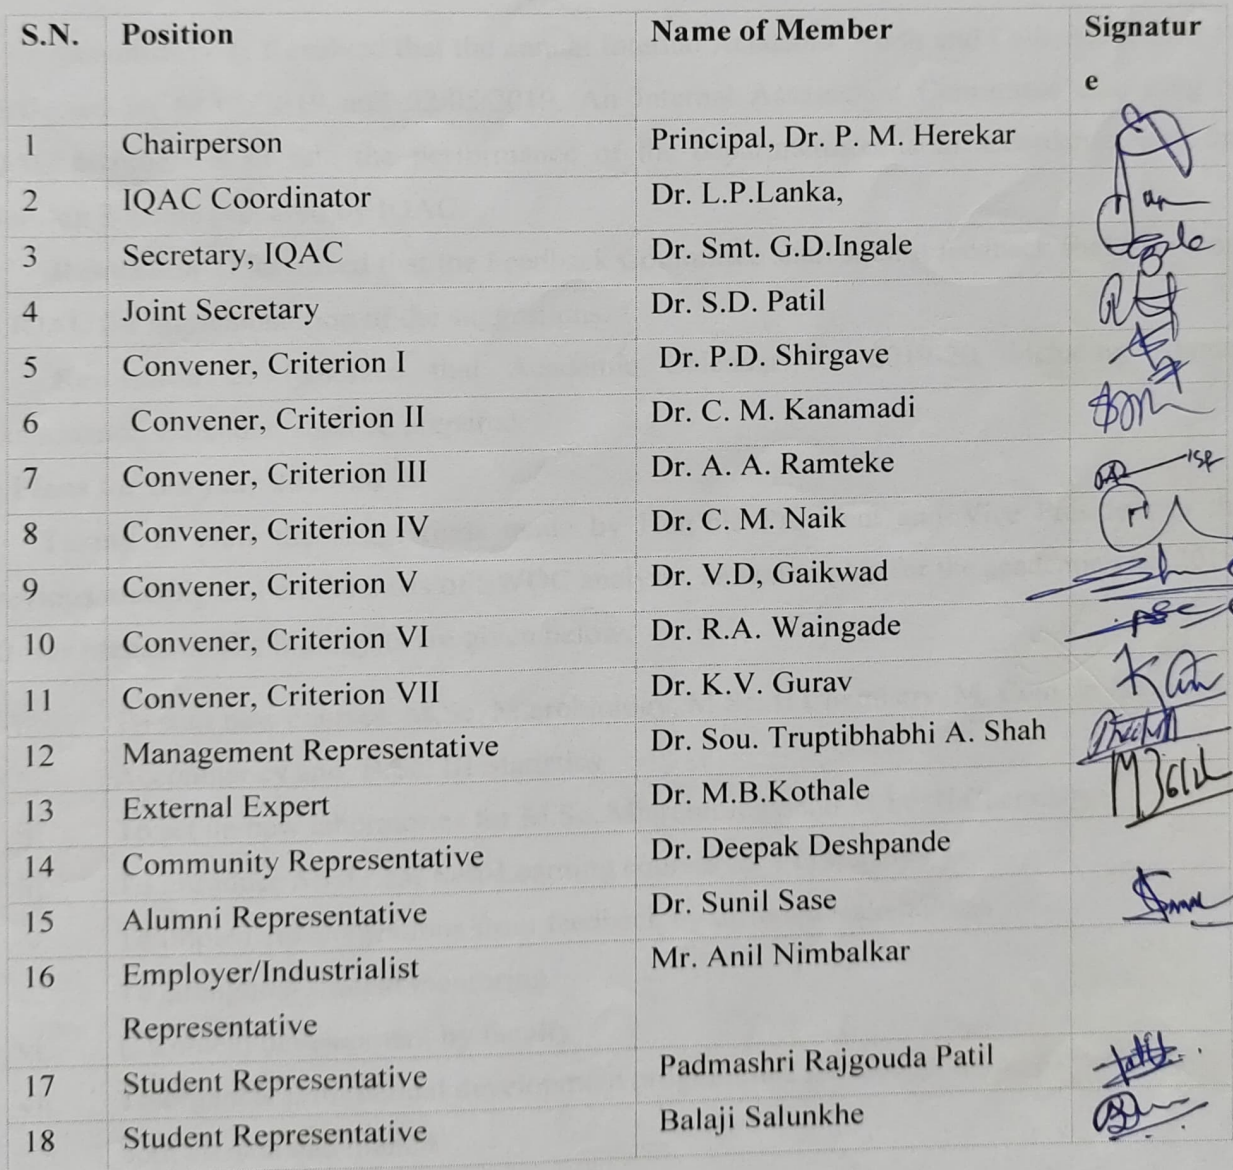 S.N. Position Name of Member Signatur
e
1 Chairperson Principal, Dr. P. M. Herekar
2 IQAC Coordinator Dr. L.P.Lanka,
3 Secretary, IQAC Dr. Smt. G.D.Ingale
4 Joint Secretary Dr. S.D. Patil
5 Convener, Criterion I Dr. P.D. Shirgave
6 Convener, Criterion II Dr. C. M. Kanamadi
7 Convener, Criterion III Dr. A. A. Ramteke
8 Convener, Criterion IV Dr. C. M. Naik
9 Convener, Criterion V Dr. V.D, Gaikwad
10 Convener, Criterion VI Dr. R.A. Waingade
11 Convener, Criterion VII Dr. K.V. Gurav
12 Management Representative Dr. Sou. Truptibhabhi A. Shah
13 External Expert Dr. M.B.Kothale
14 Community Representative Dr. Deepak Deshpande
15 Alumni Representative Dr. Sunil Sase
16 Employer/Industrialist Mr. Anil Nimbalkar
Representative
17 Student Representative Padmashri Rajgouda Patil
18 Student Representative Balaji Salunkhe